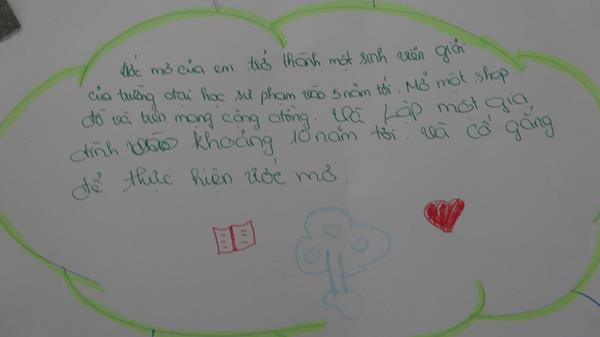 ước mơ của em trở thành một sinh viên giỏi
của trường đại học sư phạm vào 5 năm tới. Mở một shop
đồ trên mạng cộng đồng. Và Lập một gia
đình vào khoảng 10 năm tới. và cố gắng
để thực hiện ước mơ.